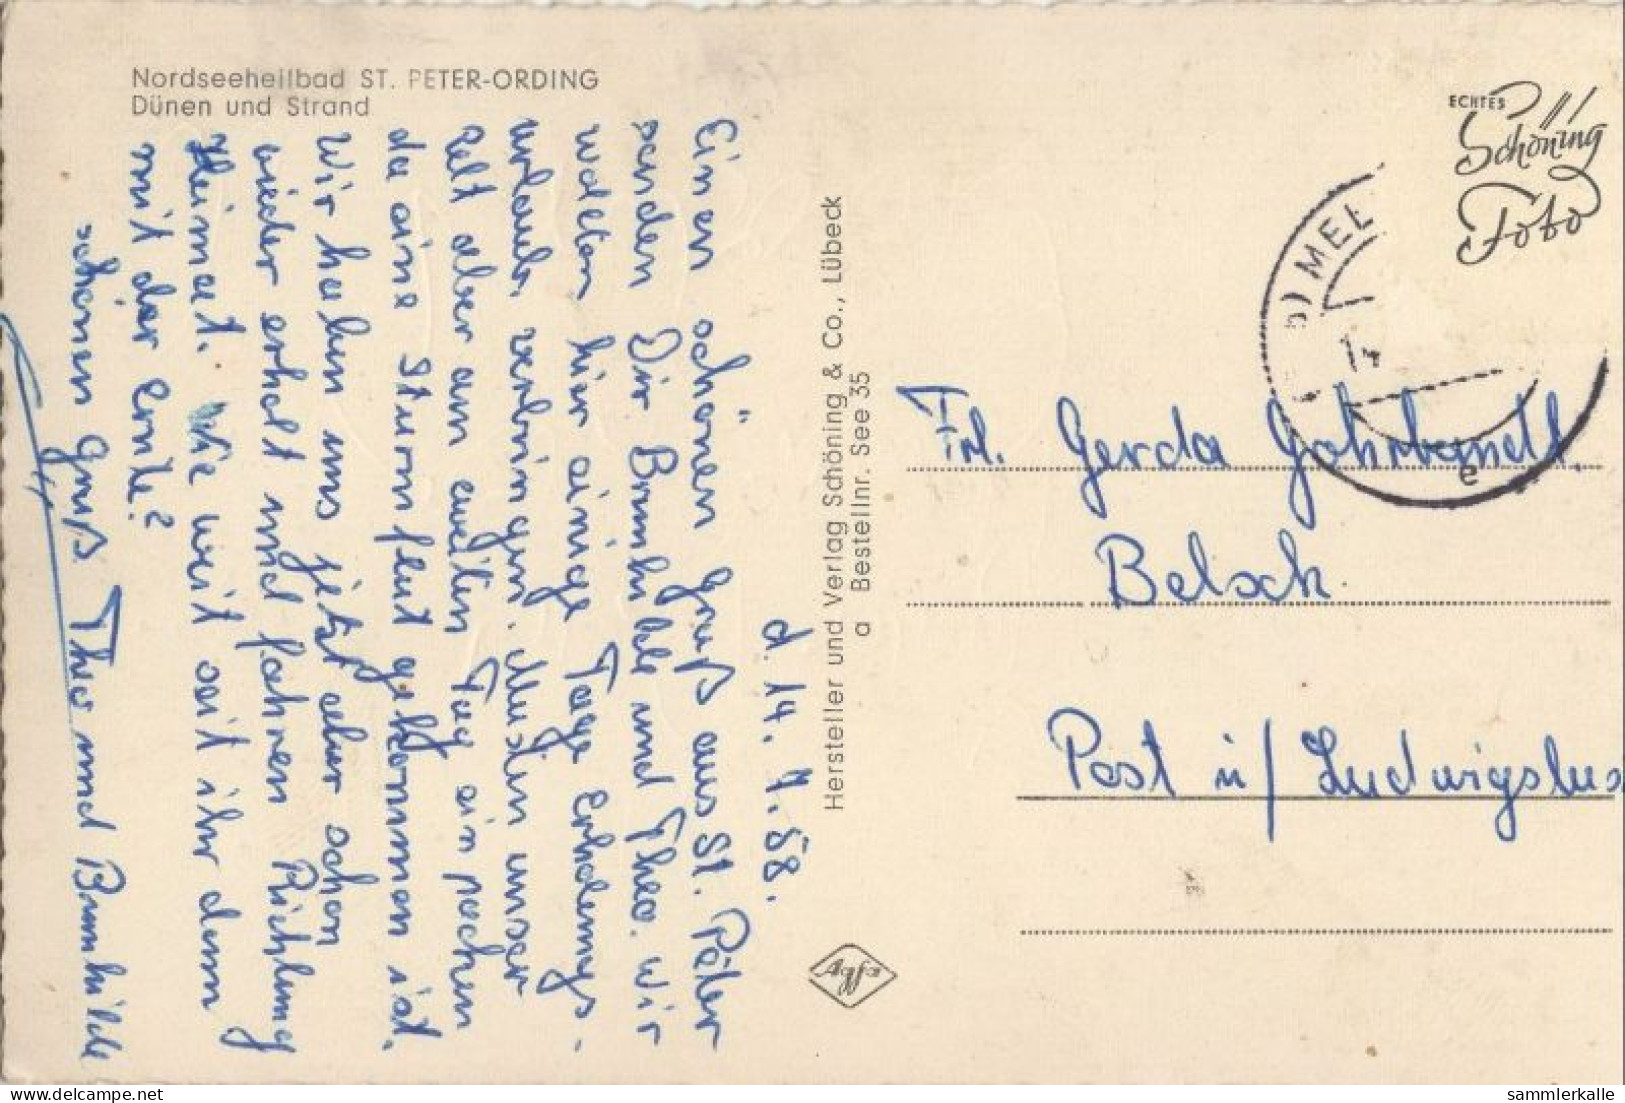 Nordseeheilbad ST. PETER-ORDING
Dünen und Strand
d. 14. 7. 58.
Einen schönen Gruß aus St. Peter
senden Dir Brunhilde und Theo. Wir
wollten hier einige Tage Erholungs-
urlaub verbringen. Mußten unser
Zelt aber am zweiten Tag einpacken
da eine Sturmflut gekommen ist.
Wir haben uns jetzt aber schon
wieder erholt und fahren Richtung
Heimat. Wie weit seit ihr denn
mit der Ernte?
schönen Gruß Theo und Brunhilde
Hersteller und Verlag Schöning & Co., Lübeck
a Bestellnr. See 35
Agfa
ECHTES
Schöning
Foto
MEL
14
e
Frl. Gerda
Belsch
Post ü/ Ludwigslus
sammlerkalle